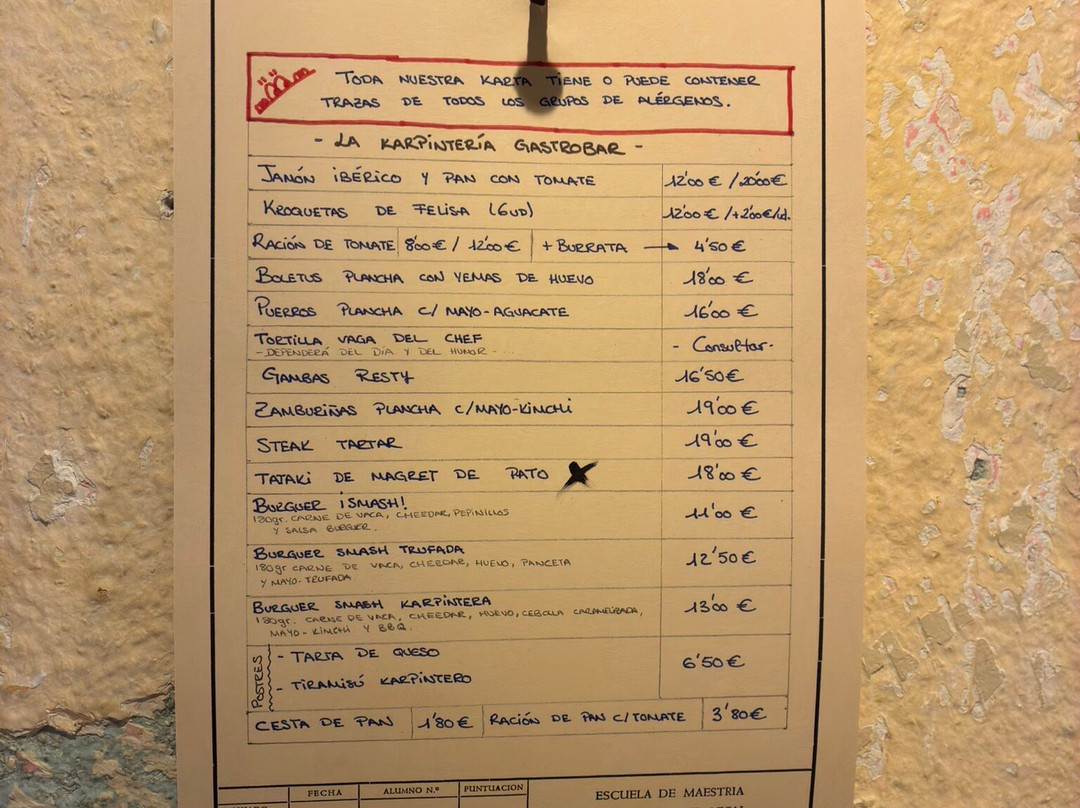 TODA NUESTRA KARTA TIENE O PUEDE CONTENER
TRAZAS DE TODOS LOS GRUPOS DE ALÉRGENOS.
- LA KARPINTERÍA GASTROBAR -
JAMÓN IBÉRICO Y PAN CON TOMATE 12'00 € / 20'00 €
KROQUETAS DE FELISA (6UD) 12'00 € / +2'00 €/ud.
RACIÓN DE TOMATE 8'00 € / 12'00 € + BURRATA → 4'50 €
BOLETUS PLANCHA CON YEMAS DE HUEVO 18'00 €
PUERROS PLANCHA C/ MAYO-AGUACATE 16'00 €
TORTILLA VAGA DEL CHEF - Consultar -
- DEPENDERÁ DEL DÍA Y DEL HUMOR - ...
GAMBAS RESTY 16'50 €
ZAMBURIÑAS PLANCHA C/MAYO-KIMCHI 19'00 €
STEAK TARTAR 19'00 €
TATAKI DE MAGRET DE PATO 18'00 €
BURGUER ¡SMASH! 11'00 €
180gr. CARNE DE VACA, CHEEDAR, PEPINILLOS
Y SALSA BURGUER.
BURGUER SMASH TRUFADA 12'50 €
180gr CARNE DE VACA, CHEEDAR, HUEVO, PANCETA
Y MAYO-TRUFADA
BURGUER SMASH KARPINTERA 13'00 €
180gr. CARNE DE VACA, CHEEDAR, HUEVO, CEBOLLA CARAMELIZADA,
MAYO-KIMCHI Y BBQ.
POSTRES
- TARTA DE QUESO 6'50 €
- TIRAMISÚ KARPINTERO
CESTA DE PAN 1'80 € RACIÓN DE PAN C/TOMATE 3'80 €
FECHA ALUMNO N.º PUNTUACION ESCUELA DE MAESTRIA